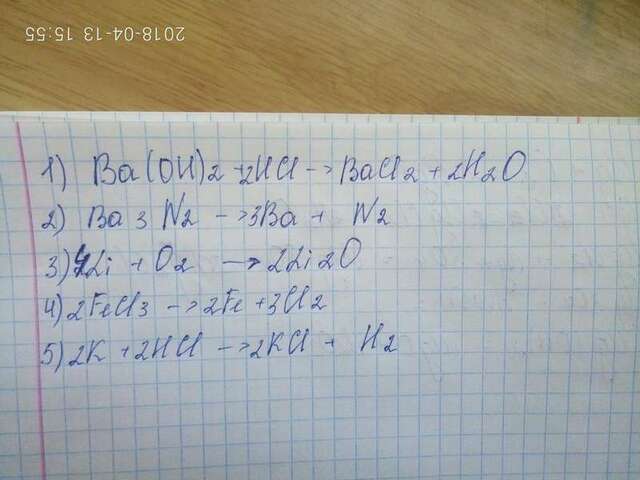 2018-04-13 15:55
1) Ba(OH)2 + 2HCl -> BaCl2 + 2H2O
2) Ba3N2 -> 3Ba + N2
3) 4Li + O2 -> 2Li2O
4) 2FeCl3 -> 2Fe + 3Cl2
5) 2K + 2HCl -> 2KCl + H2